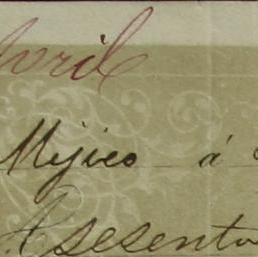 Avril
Mejico á
Sesenta